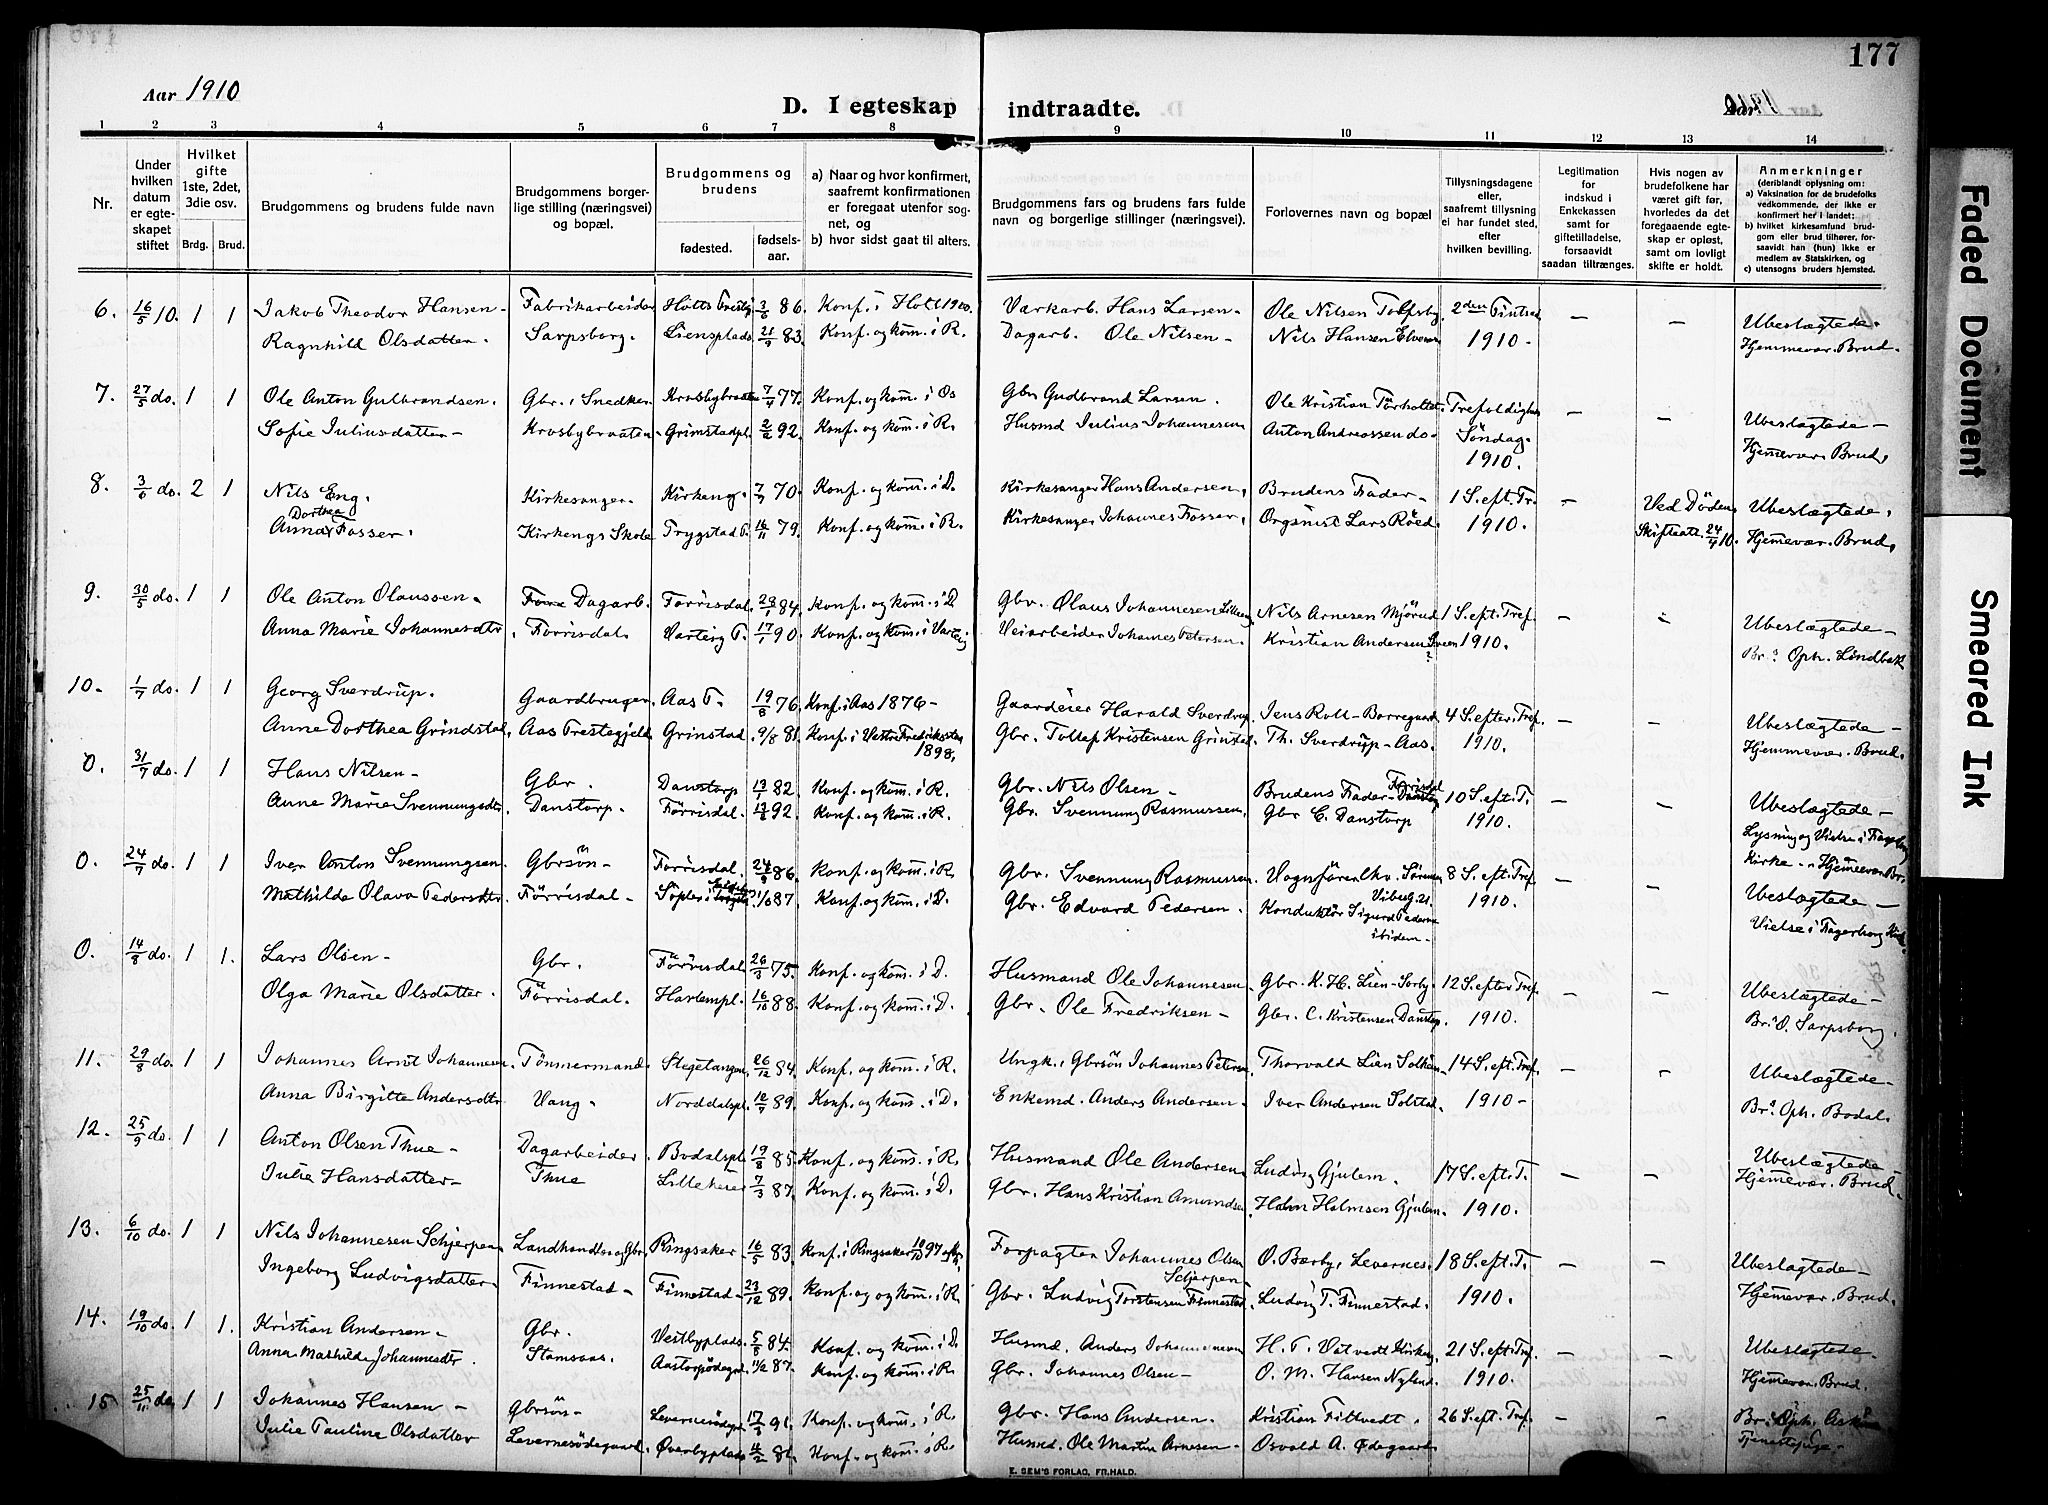 177
Aar 1910
D. I egteskap indtraadte.
1 2 3 4 5 6 7 8 9 10 11 12 13 14
Nr.
Under hvilken datum er egteskapet stiftet
Hvilket gifte 1ste, 2det, 3die osv.
Brdg. Brud.
Brudgommens og brudens fulde navn
Brudgommens borgerlige stilling (næringsvei) og bopæl.
Brudgommens og brudens
fødested. fødselsaar.
a) Naar og hvor konfirmert, saafremt konfirmationen er foregaat utenfor sognet, og
b) hvor sidst gaat til alters.
Brudgommens fars og brudens fars fulde navn og borgerlige stillinger (næringsvei).
Forlovernes navn og bopæl
Tillysningsdagene eller, saafremt tillysning ei har fundet sted, efter hvilken bevilling.
Legitimation for indskud i Enkekassen samt for giftetilladelse, forsaavidt saadan tiltrænges.
Hvis nogen av brudefolkene har været gift før, hvorledes da det foregaaende egteskap er opløst, samt om lovligt skifte er holdt.
Anmerkninger
(deriblandt oplysning om:
a) Vaksination for de brudefolks vedkommende, der ikke er konfirmert her i landet;
b) hvilket kirkesamfund brudgom eller brud tilhører, forsaavidt han (hun) ikke er medlem av Statskirken, og
c) utensogns bruders hjemsted.
6. 16/5 10. 1 1 Jakob Theodor Hansen - Fabrikarbeider 3/6 86 Konf. i Holt 1900. Varkarb. Hans Larsen - Ole Nilsen 2den - - Ubeslægtede.
Ragnhild Olsdatter. Sarpsborg. Liensplads 21/9 83. Konf. og kom. i R. Dagarb. Ole Nilsen - Nils Hansen 1910 - Hjemmevær. Brud.
7. 27/5 do. 1 1 Ole Anton Gulbrandsen. Gbr., Snedker Krosbybraaten 7/4 77. Konf. og kom. i Os Gbr Gudbrand Larsen. Ole Kristian - - Ubeslægtede -
Sofie Juliusdatter - Krosbybraaten - Grimstadpl. 2/2 92. Konf. og kom. i R. Husmd Julius Johannesen Anton Andreassen do - Søndag. 1910. Hjemmevær. Brud.
8. 3/6 do. 2 1 Nils Eng. Kirkesanger. Kirkeng. 7/7 70. Konf. og kom. i D. Kirkesanger Hans Andersen, Brudens Fader - 1 S. eft. Tr. - Ved Döden, Ubeslægtede.
Anna Dorthea Fosser. Kirkengs Skole Trygstad P. 16/11 79. Konf. og kom. i R. Kirkesanger Johannes Fosser, Organist Lars Röed. 1910. Skifteatt. 24/4 10. Hjemmevær. Brud.
9. 30/5 do. 1 1 Ole Anton Olaussen. Dagarb. Förrisdal. 84. Konf. og kom. i D Gbr. Olaus Johannesen Nils Arnesen Mjörud 1 S. eft. Tref. - - Ubeslægtede -
Anna Marie Johannesdtr. Förrisdal. Varteig P. 17/1 90. Konf. og kom. i Varteig Veiarbeider Johannes Petersen. Kristian Andersen 1910. Br's Oph. Lindbæk
10. 1/7 do. 1 1 Georg Sverdrup. Gaardbruger. Aas P. 19/8 76. Konf. i Aas 1876 - Gaardeier Harald Sverdrup. Jens Roll - Borregaard 4 S. efter. Tref. - - Ubeslægtede -
Anne Dorthea Grindstad. Aas Prestegjeld. Grinstad. 9/8 81. Konf. i Vestre Fredrikstad 1898. Gbr. Tollef Kristensen Grinstad. Th. Sverdrup - Aas. 1910. Hjemmevær. Brud.
0. 31/7 do. 1 1 Hans Nilsen - Gbr. Danstorp 13/1 82. Konf. og kom. i R. Gbr. Nils Olsen - Brudens Fader - Förrisdal 10 S. eft. T. - - Ubeslægtede -
Anne Marie Svennungsdtr. Danstorp. Förrisdal. 92. Konf. og kom. i R. Gbr. Svennung Rasmussen. Gbr C. Danstorp 1910. Lysning og Vielse i Fagerborg Kirke - Hjemmevær Br.
0. 24/7 do. 1 1 Iver Anton Svennungsen. Gbrsön - Förrisdal. 86. Konf. og kom. i R. Gbr. Svennung Rasmussen 8 S. eft. Tref. - - Ubeslægtede -
Mathilde Olava Pedersdtr. Förrisdal - 87. Konf. og kom. i D. Gbr. Edvard Pedersen. Konduktör Sigurd Pedersen ibidem - 1910. Vielse i Fagerborg Kirke
0. 14/8 do. 1 1. Lars Olsen - Gbr. Förrisdal 26/3 75. Konf. og kom. i D. Husmand Ole Johannesen Gbr. K. H. Lien - Sorby. 12 S. efter Tref. - - Ubeslægtede -
Olga Marie Olsdatter. Förrisdal. Harlempl. 16/10 88. Konf. og kom. i D. Gbr. Ole Fredriksen - Gbr. C. Kristensen Danstorp. 1910. Br's O. Sarpsborg.
11. 29/8 do. 1 1 Johannes Arnt Johannesen. Tömmermand. Stegetangen. 26/12 84. Konf. og kom. i R. Ungk., Gbrsön Johannes Petersen Thorvald Lien 14 S. eft. Tref. - - Ubeslægtede -
Anna Birgitte Andersdtr. Vang. Norddalspl. 10/7 89. Konf. og kom. i D. Enkemd. Anders Andersen. Iver Andersen Solstad. 1910 - Br's Oph. Bodal.
12. 25/9 do. 1 1 Anton Olsen Thue - Dagarbeider. Bodalspl. 19/8 85. Konf. og kom. i R. Husmand Ole Andersen Ludvig Gjulem. 17 S. eft. T. - - Ubeslægtede
Julie Hansdatter - Thue 7/3 87. Konf. og kom. i D. Gbr. Hans Kristian Amundsen Halmsen Gjulem. 1910. Hjemmevær. Brud.
13. 6/10 do. 1 1 Nils Johannesen Schjerpen. Landhandler og Gbr. Ringsaker 16/5 83. Konf. i Ringsaker 10/10 97 Forpagter Johannes Olsen Schjerpen - O. Bærby, Levernes. 18 S. eft. T. - - Ubeslægtede -
Ingeborg Ludvigsdatter. Finnestad - Finnestad - 23/12 89. Konf. og kom. i R. Gbr. Ludvig Torstensen Finnestad. Ludvig T. Finnestad. 1910. Hjemmevær. Brud.
14. 19/10 do. 1 1. Kristian Andersen - Gbr. Vestbyplads. 5/5 84. Konf. og kom. i D. Husmd. Anders Johannesen H. P. Vatvedt 21 S. eft. Tref. - - Ubeslægtede.
Anna Mathilde Johannesdtr. Stomsaas. 11/2 87. Konf. og kom. i R. Gbr. Johannes Olsen - O. M. Hansen Nylend. 1910. Hjemmevær. Brud.
15 25/11 do. 1 1 Johannes Hansen - Gbrsön - Levernesödegaard. 17/3 91. Konf. og kom. i R. Gbr. Hans Andersen. Kristian Tittvedt. 26 S. eft. Tref. - - Br's Oph.
Julie Pauline Olsdatter Levernesödegaard. Överbyplads 86. Konf. og kom. i R. Husmd. Ole Martin Arnesen - Osvald A. Ödegaard
E. SEM'S FORLAG, FR.HALD.
Faded Document
Smeared Ink